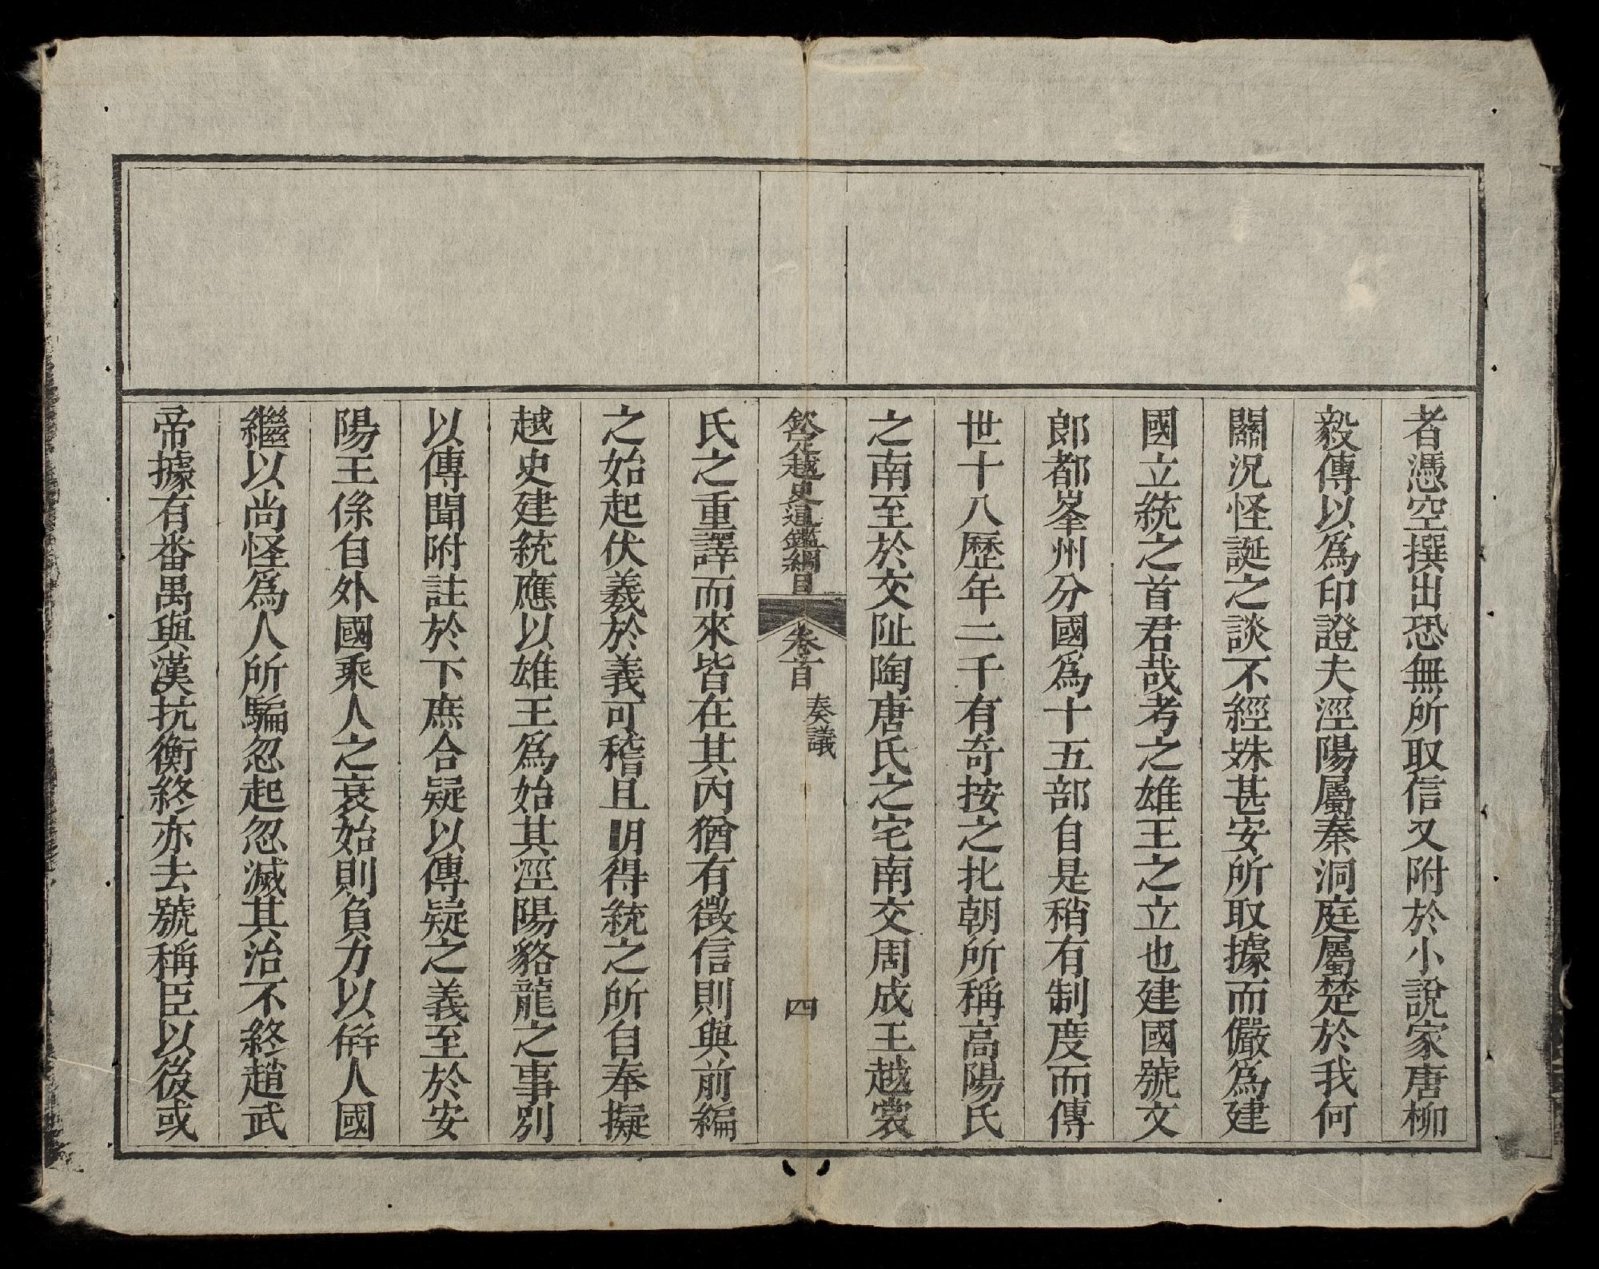 者憑空撰出恐無所取信又附於小說家唐柳
毅傳以為印證夫涇陽屬秦洞庭屬楚於我何
關況怪誕之談不經姝甚安所取據而儼為建
國立統之首君哉考之雄王之立也建國號文
郎都峯州分國為十五部自是稍有制度而傳
世十八歷年二千有奇按之北朝所稱高陽氏
之南至於交阯陶唐氏之宅南交周成王越裳
欽定越史通鑑綱目
卷首
奏議
四
氏之重譯而來皆在其內猶有徵信則與前編
之始起伏羲於義可稽且明得統之所自奉擬
越史建統應以雄王爲始其涇陽貉龍之事別
以傳聞附註於下庶合疑以傳疑之義至於安
陽王係自外國乘人之衰始則負力以倂人國
繼以尚怪爲人所騙忽起忽滅其治不終趙武
帝據有番禺與漢抗衡終亦去號稱臣以後或